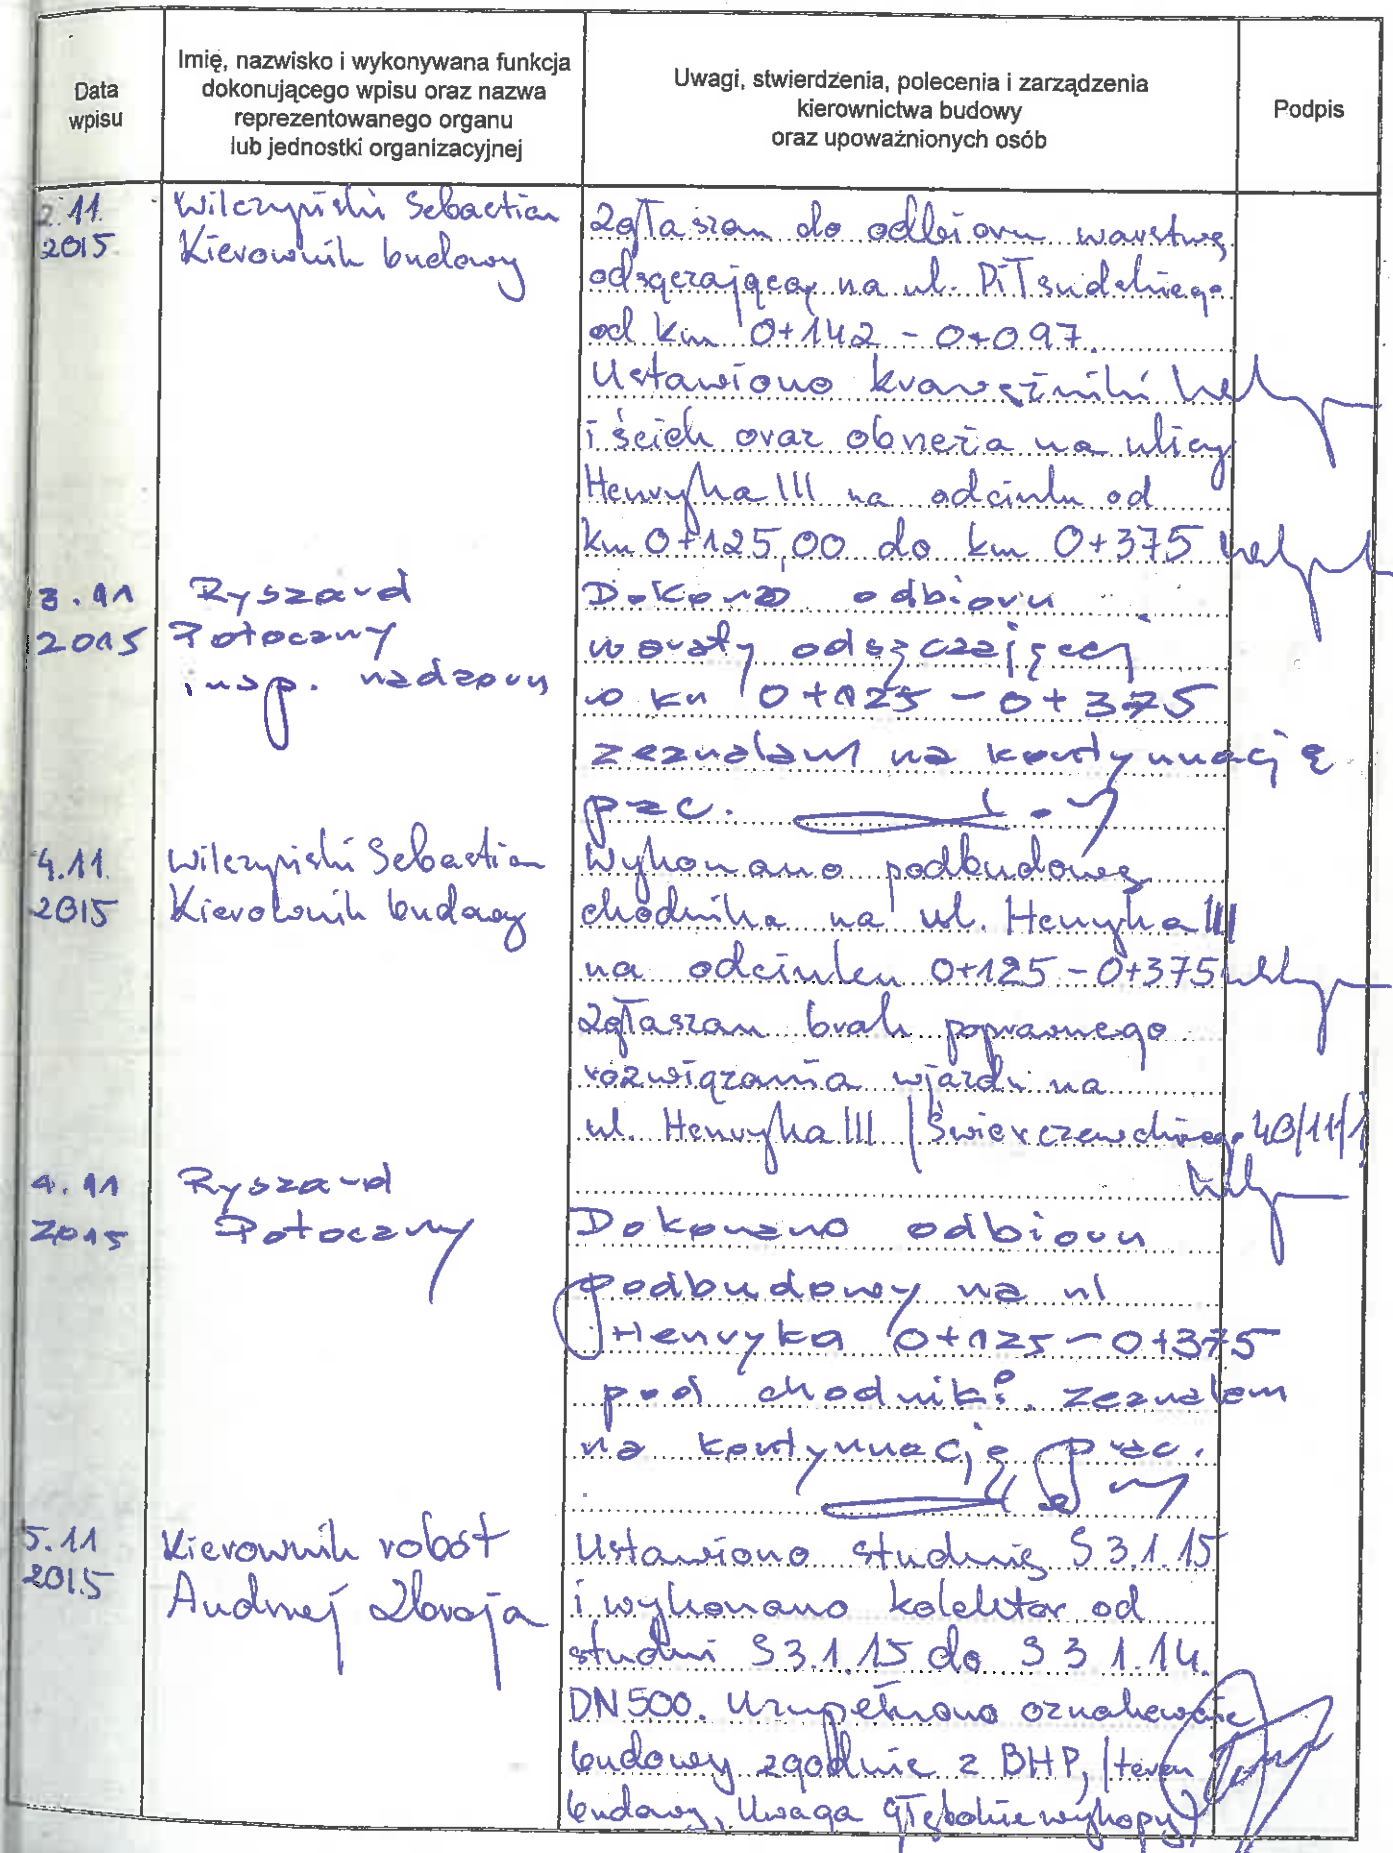 Data
wpisu
Imię, nazwisko i wykonywana funkcja
dokonującego wpisu oraz nazwa
reprezentowanego organu
lub jednostki organizacyjnej
Uwagi, stwierdzenia, polecenia i zarządzenia
kierownictwa budowy
oraz upoważnionych osób
Podpis
2.11.
2015
Wilczyński Sebastian
Kierownik budowy
Zgłaszam do odbioru warstwę
odsączającą na ul. Piłsudskiego
od km 0+142 - 0+097.
Ustawiono krawężniki
i ściek oraz obrzeża na ulicy
Henryka III na odcinku od
km 0+125,00 do km 0+375
3.11
2015
Ryszard
Potoczny
insp. nadzoru
Dokonano odbioru
warstwy odsączającej
w km 0+125 - 0+375
zezwalam na kontynuację
prac.
4.11.
2015
Wilczyński Sebastian
Kierownik budowy
Wykonano podbudowę
chodnika na ul. Henryka III
na odcinku 0+125 - 0+375
Zgłaszam brak poprawnego
rozwiązania wjazdu na
ul. Henryka III / Świerczewskiego
4.11
2015
Ryszard
Potoczny
Dokonano odbioru
podbudowy na ul
Henryka 0+125 - 0+375
pod chodniki. zezwalam
na kontynuację prac.
5.11
2015
Kierownik robót
Andrzej Zbroja
Ustawiono studnię S3.1.15
i wykonano kolektor od
studni S3.1.15 do S3.1.14.
DN500. Uzupełniono oznakowanie
budowy zgodnie z BHP, (teren
budowy, Uwaga głębokie wykopy)